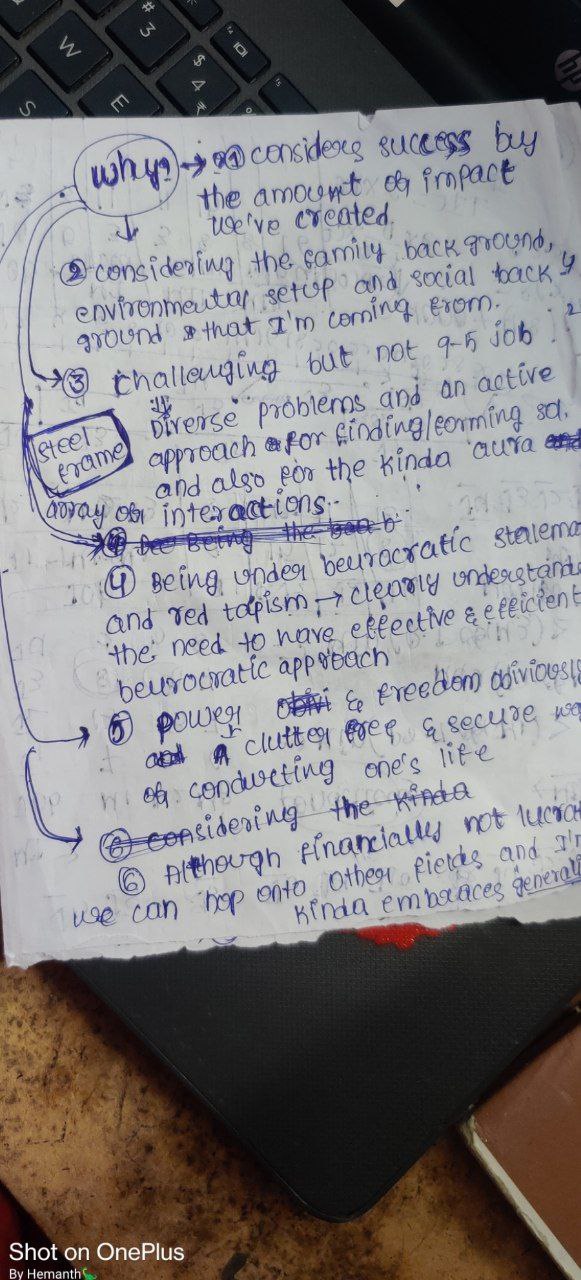 why? → ① considers success by
the amount of impact
we've created.
② considering the family background,
environmental setup and social back
ground & that I'm coming from.
③ challenging but not 9-5 job.
Diverse problems and an active
approach for finding/forming sol.
and also for the kinda aura and
steel
frame
array of interactions.
④ Being under beurocratic stalema
and red tapism → clearly understands
the need to have effective & efficient
beurocratic approach
⑤ power & freedom obiviously
A clutter free & secure wa
of conducting one's life
⑥ considering the kinda
⑥ Although financially not lucra
we can hop onto other fields and I'm
kinda embraces general
W
E
S
#
3
$
4
₹
hp
Shot on OnePlus
By Hemanth